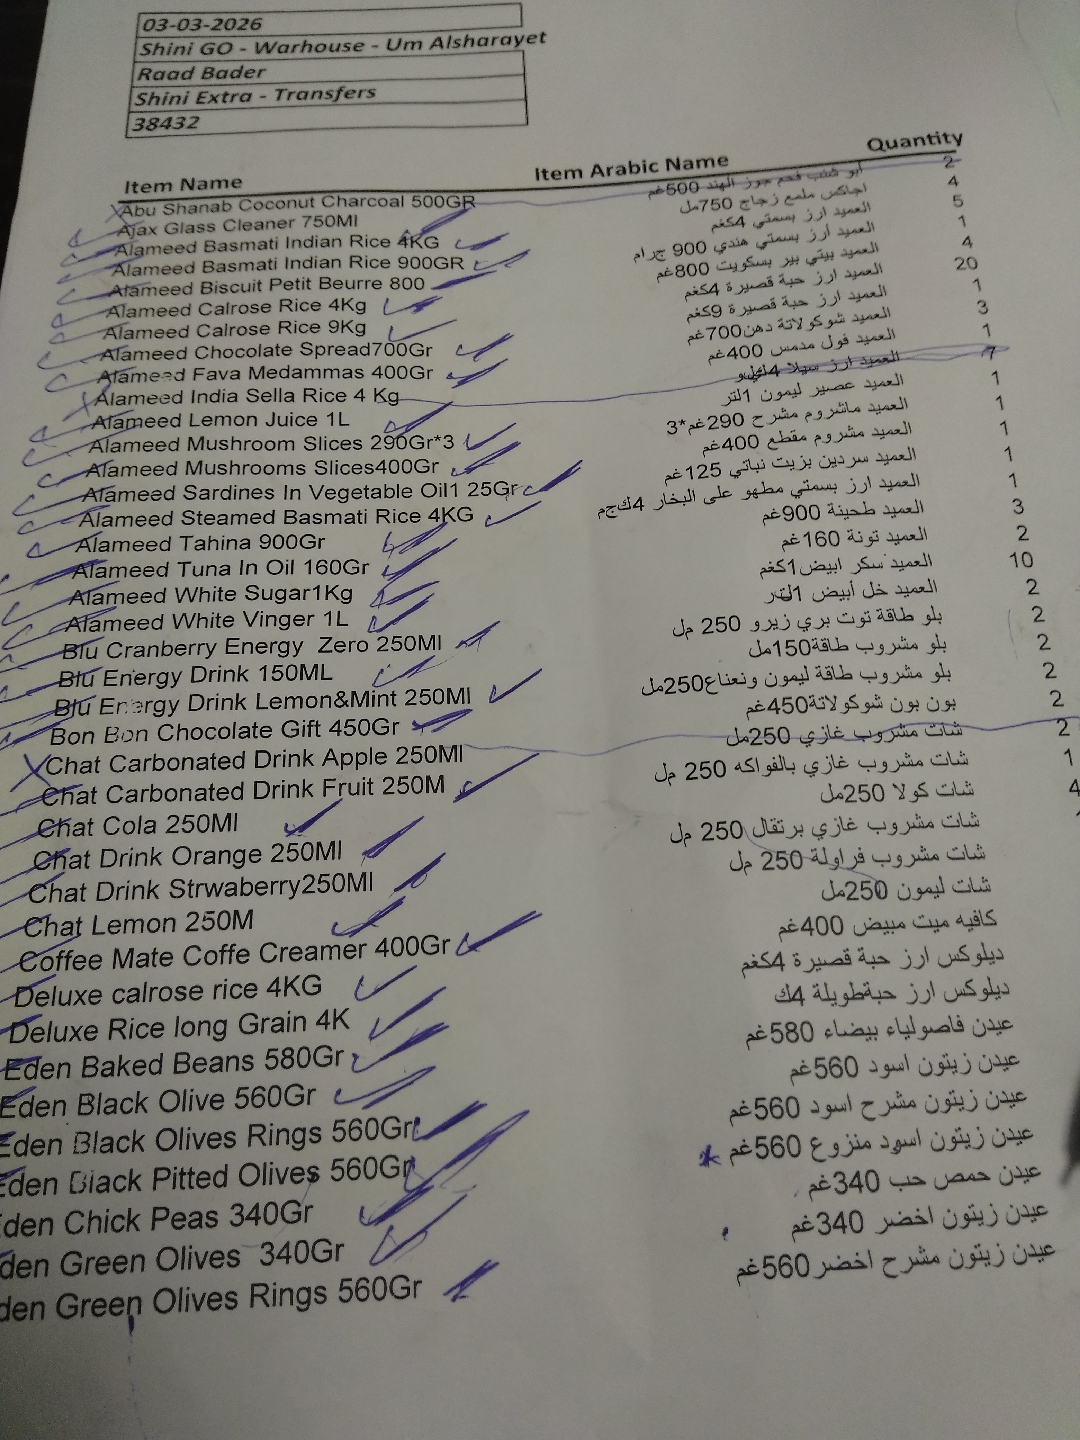 03-03-2026
Shini GO - Warhouse - Um Alsharayet
Raad Bader
Shini Extra - Transfers
38432
Item Name Item Arabic Name Quantity
Abu Shanab Coconut Charcoal 500GR ابو شنب فحم جوز الهند 500غم 2
Ajax Glass Cleaner 750Ml اجاكس ملمع زجاج 750مل 4
Alameed Basmati Indian Rice 4KG العميد ارز بسمتي 4كغم 5
Alameed Basmati Indian Rice 900GR العميد ارز بسمتي هندي 900 جرام 1
Alameed Biscuit Petit Beurre 800 العميد بيتي بير بسكويت 800غم 4
Alameed Calrose Rice 4Kg العميد ارز حبة قصيرة 4كغم 20
Alameed Calrose Rice 9Kg العميد ارز حبة قصيرة 9كغم 1
Alameed Chocolate Spread700Gr العميد شوكولاتة دهن700غم 3
Alameed Fava Medammas 400Gr العميد فول مدمس 400غم 1
Alameed India Sella Rice 4 Kg العميد ارز سيلا 4كيلو 7
Alameed Lemon Juice 1L العميد عصير ليمون 1لتر 1
Alameed Mushroom Slices 290Gr*3 العميد ماشروم مشرح 290غم*3 1
Alameed Mushrooms Slices400Gr العميد مشروم مقطع 400غم 1
Alameed Sardines In Vegetable Oil1 25Gr العميد سردين بزيت نباتي 125غم 1
Alameed Steamed Basmati Rice 4KG العميد ارز بسمتي مطهو على البخار 4ك 1
Alameed Tahina 900Gr العميد طحينة 900غم 3
Alameed Tuna In Oil 160Gr العميد تونة 160غم 2
Alameed White Sugar1Kg العميد سكر ابيض1كغم 10
Alameed White Vinger 1L العميد خل أبيض 1لتر 2
Blu Cranberry Energy Zero 250Ml بلو طاقة توت بري زيرو 250 مل 2
Blu Energy Drink 150ML بلو مشروب طاقة150مل 2
Blu Energy Drink Lemon&Mint 250Ml بلو مشروب طاقة ليمون ونعناع250مل 2
Bon Bon Chocolate Gift 450Gr بون بون شوكولاتة450غم 2
Chat Carbonated Drink Apple 250Ml شات مشروب غازي 250مل 2
Chat Carbonated Drink Fruit 250M شات مشروب غازي بالفواكه 250 مل 1
Chat Cola 250Ml شات كولا 250مل 4
Chat Drink Orange 250Ml شات مشروب غازي برتقال 250 مل
Chat Drink Strwaberry250Ml شات مشروب فراولة 250 مل
Chat Lemon 250M شات ليمون 250مل
Coffee Mate Coffe Creamer 400Gr كافيه ميت مبيض 400غم
Deluxe calrose rice 4KG ديلوكس ارز حبة قصيرة 4كغم
Deluxe Rice long Grain 4K ديلوكس ارز حبةطويلة 4ك
Eden Baked Beans 580Gr عيدن فاصولياء بيضاء 580غم
Eden Black Olive 560Gr عيدن زيتون اسود 560غم
Eden Black Olives Rings 560Gr عيدن زيتون مشرح اسود 560غم
Eden Black Pitted Olives 560Gr عيدن زيتون اسود منزوع 560غم
Eden Chick Peas 340Gr عيدن حمص حب 340غم
den Green Olives 340Gr عيدن زيتون اخضر 340غم
den Green Olives Rings 560Gr عيدن زيتون مشرح اخضر560غم